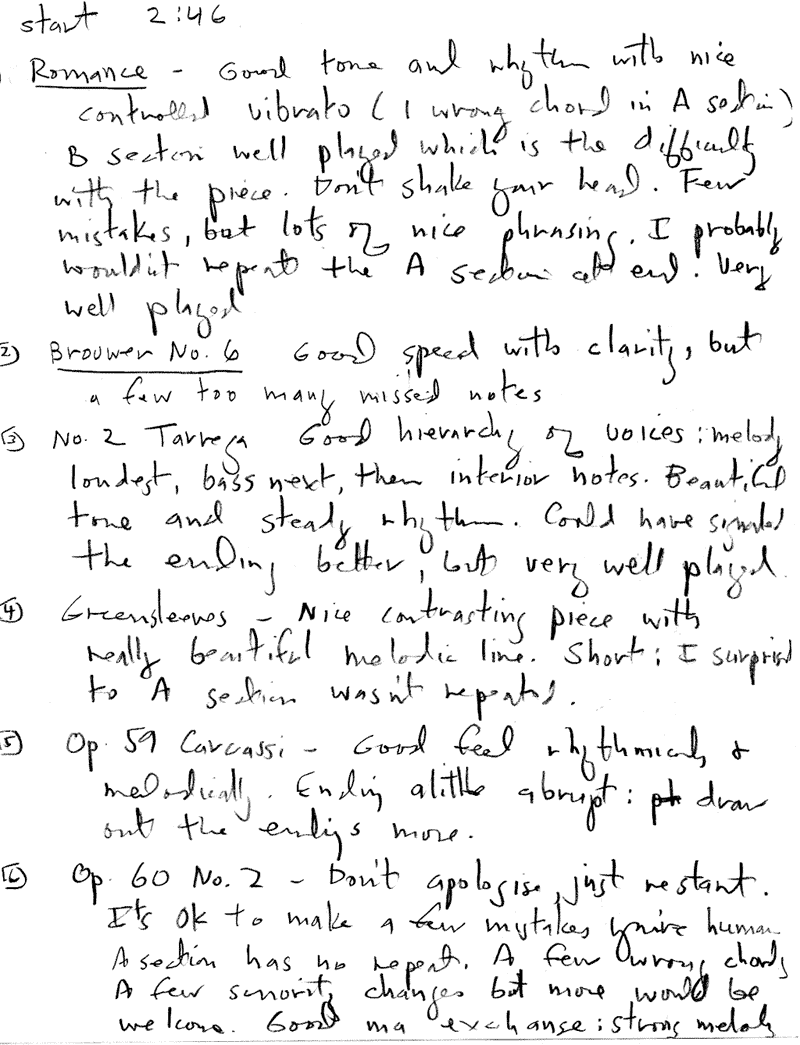 start 2:46
Romance - Good tone and rhythm with nice
controlled vibrato (1 wrong chord in A section)
B section well played which is the difficulty
with the piece. Don't shake your head. Few
mistakes, but lots of nice phrasing. I probably
wouldn't repeat the A section at end. Very
well played
② Brouwer No. 6 Good speed with clarity, but
a few too many missed notes
③ No. 2 Tarrega Good hierarchy of voices: melody
loudest, bass next, then interior notes. Beautiful
tone and steady rhythm. Could have signaled
the ending better, but very well played.
④ Greensleeves - Nice contrasting piece with
really beautiful melodic line. Short: I surprised
to A section wasn't repeated.
⑤ Op. 59 Carcassi - Good feel rhythmically &
melodically. Ending a little abrupt: draw
out the endings more.
⑥ Op. 60 No. 2 - Don't apologise, just restart.
It's ok to make a few mistakes you're human
A section has no repeat. A few wrong chords
A few sonority changes but more would be
welcome. Good ma exchange: strong melody